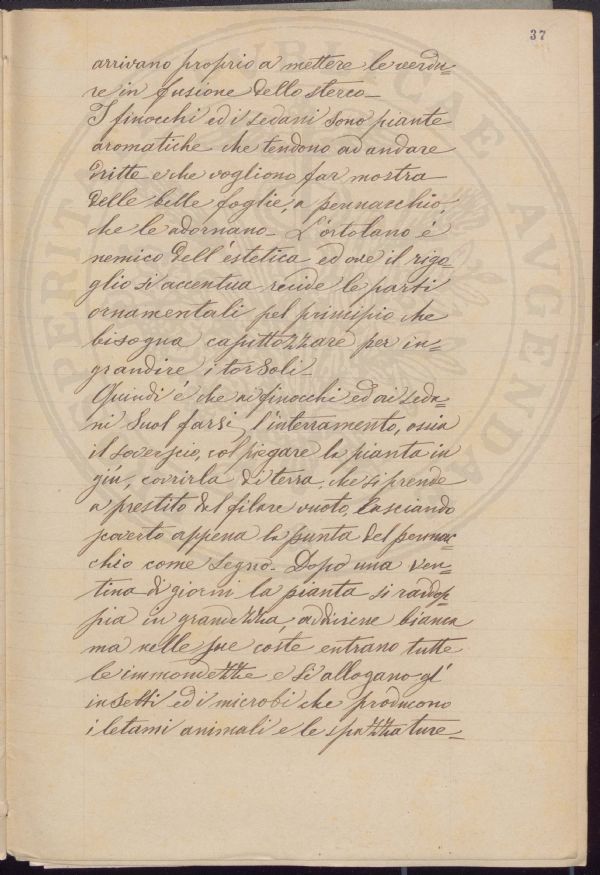 37
arrivano proprio a mettere le verdu-
re in fusione dello sterco-
I finocchi ed i sedani sono piante
aromatiche che tendono ad andare
dritte e che vogliono far mostra
delle belle foglie, a pennacchio,
che le adornano- L'ortolano é
nemico dell'estetica ed ove il rigo-
glio si accentua recide le parti
ornamentali pel principio che
bisogna caputtozzare per in-
grandire i torsoli-
Quindi é che ai finocchi ed ai seda-
ni suol farsi l'interramento, ossia
il soverscio, col piegare la pianta in
giú, covrirla di terra, che si prende
a prestito dal filare vuoto, lasciando
scoverto appena la punta del pennac-
chio come segno- Dopo una ven-
tina di giorni la pianta si raddop-
pia in grandezza, addiviene bianca
ma nelle sue coste entrano tutte
le immondezze e si allogano gl'
insetti ed i microbi che producono
i letami animali e le spazzature-
SPERITA
AVGENDA